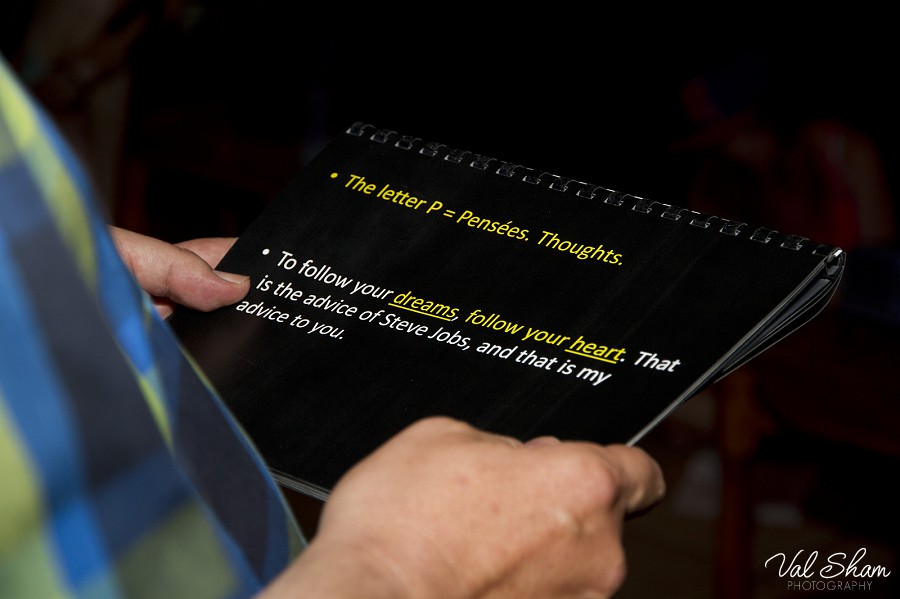 • The letter P = Pensées. Thoughts.
• To follow your dreams, follow your heart. That
is the advice of Steve Jobs, and that is my
advice to you.
Val Sham
PHOTOGRAPHY